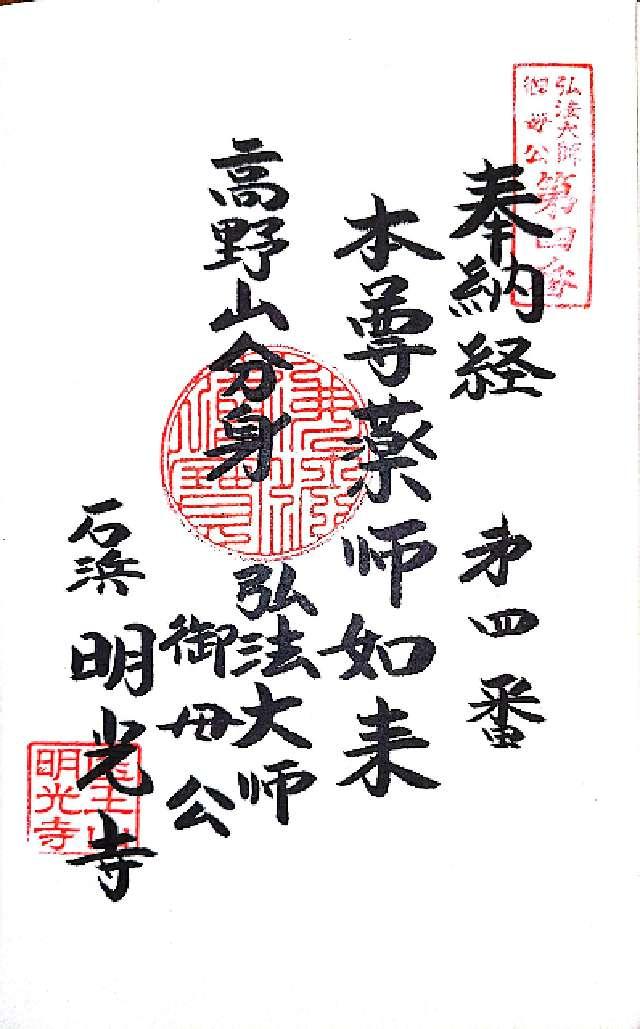 弘法大師
御母公
第四番
奉納経 第四番
本尊薬師如来
高野山分身
弘法大師
御母公
石浜 明光寺
医王山
明光寺